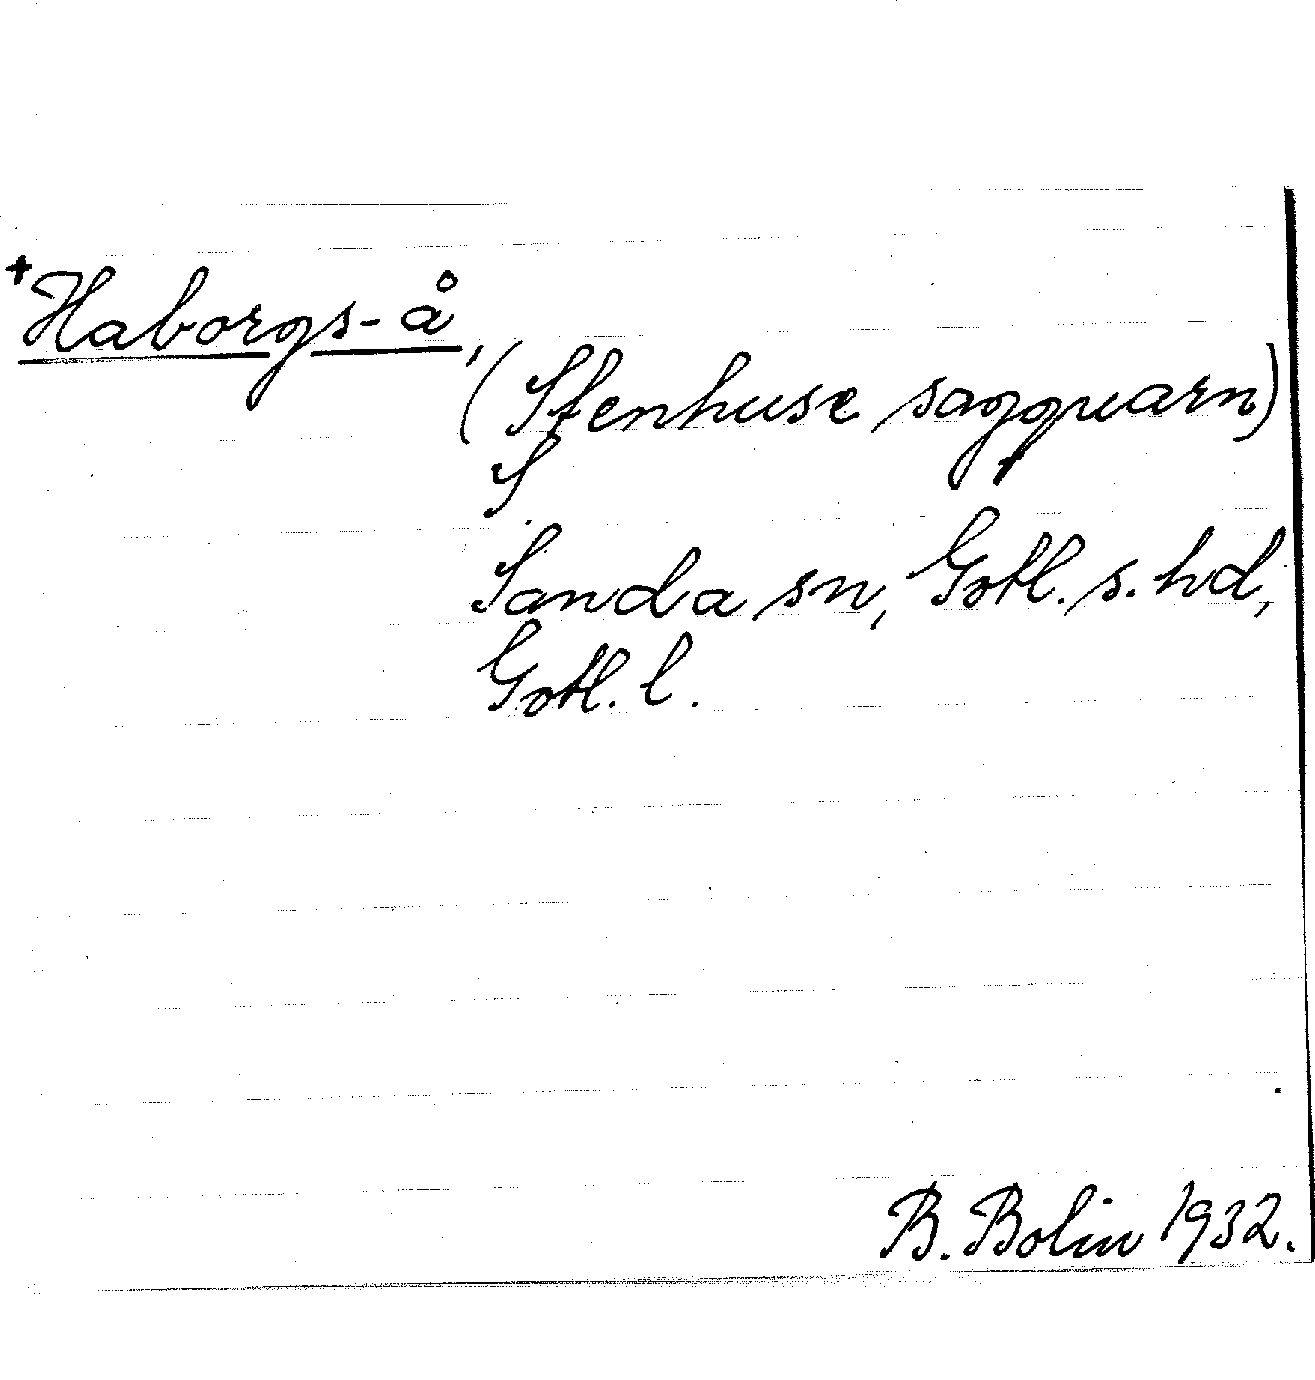 +Haborgs-å,
(Stenhuse sagquarn)
S
Sanda sn, Gotl. s. hd,
Gotl. l.
B. Bolin 1932.